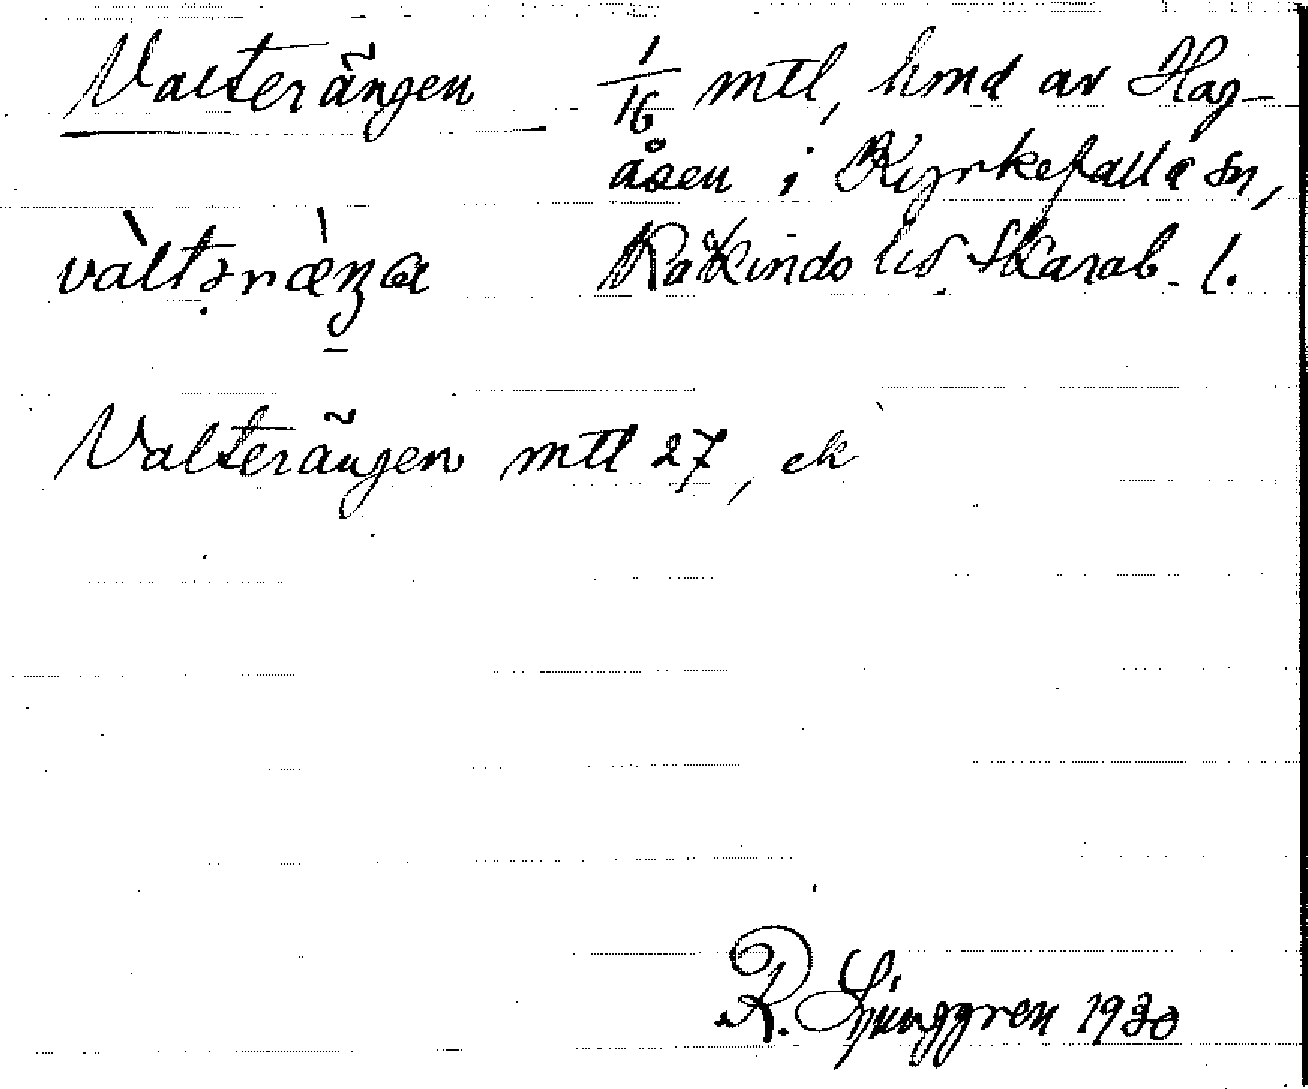 Valterängen 1/16 mtl, hmd av Hag-
åsen i Kyrkefalla sn,
Kåkinds hd Skarab. l.
Valterängen mtl 27, ek
R. Ljunggren 1930